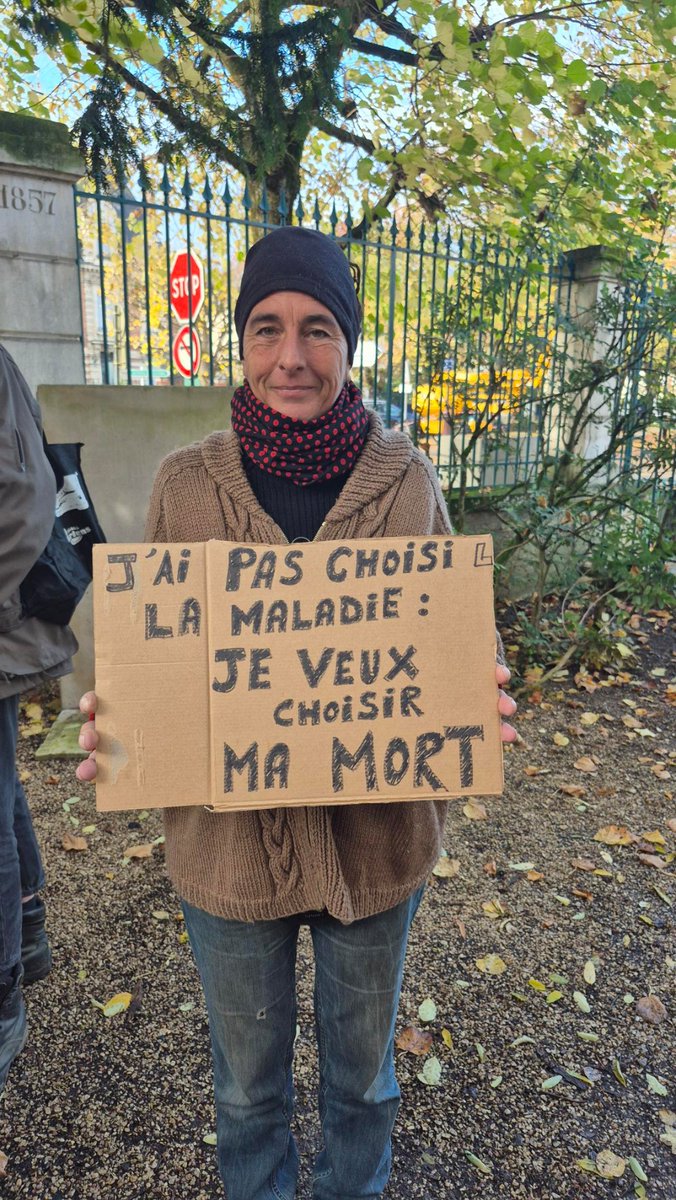 1857
STOP
J'Ai PAS CHOISI L
LA MALADIE :
JE VEUX
CHOISIR
MA MORT